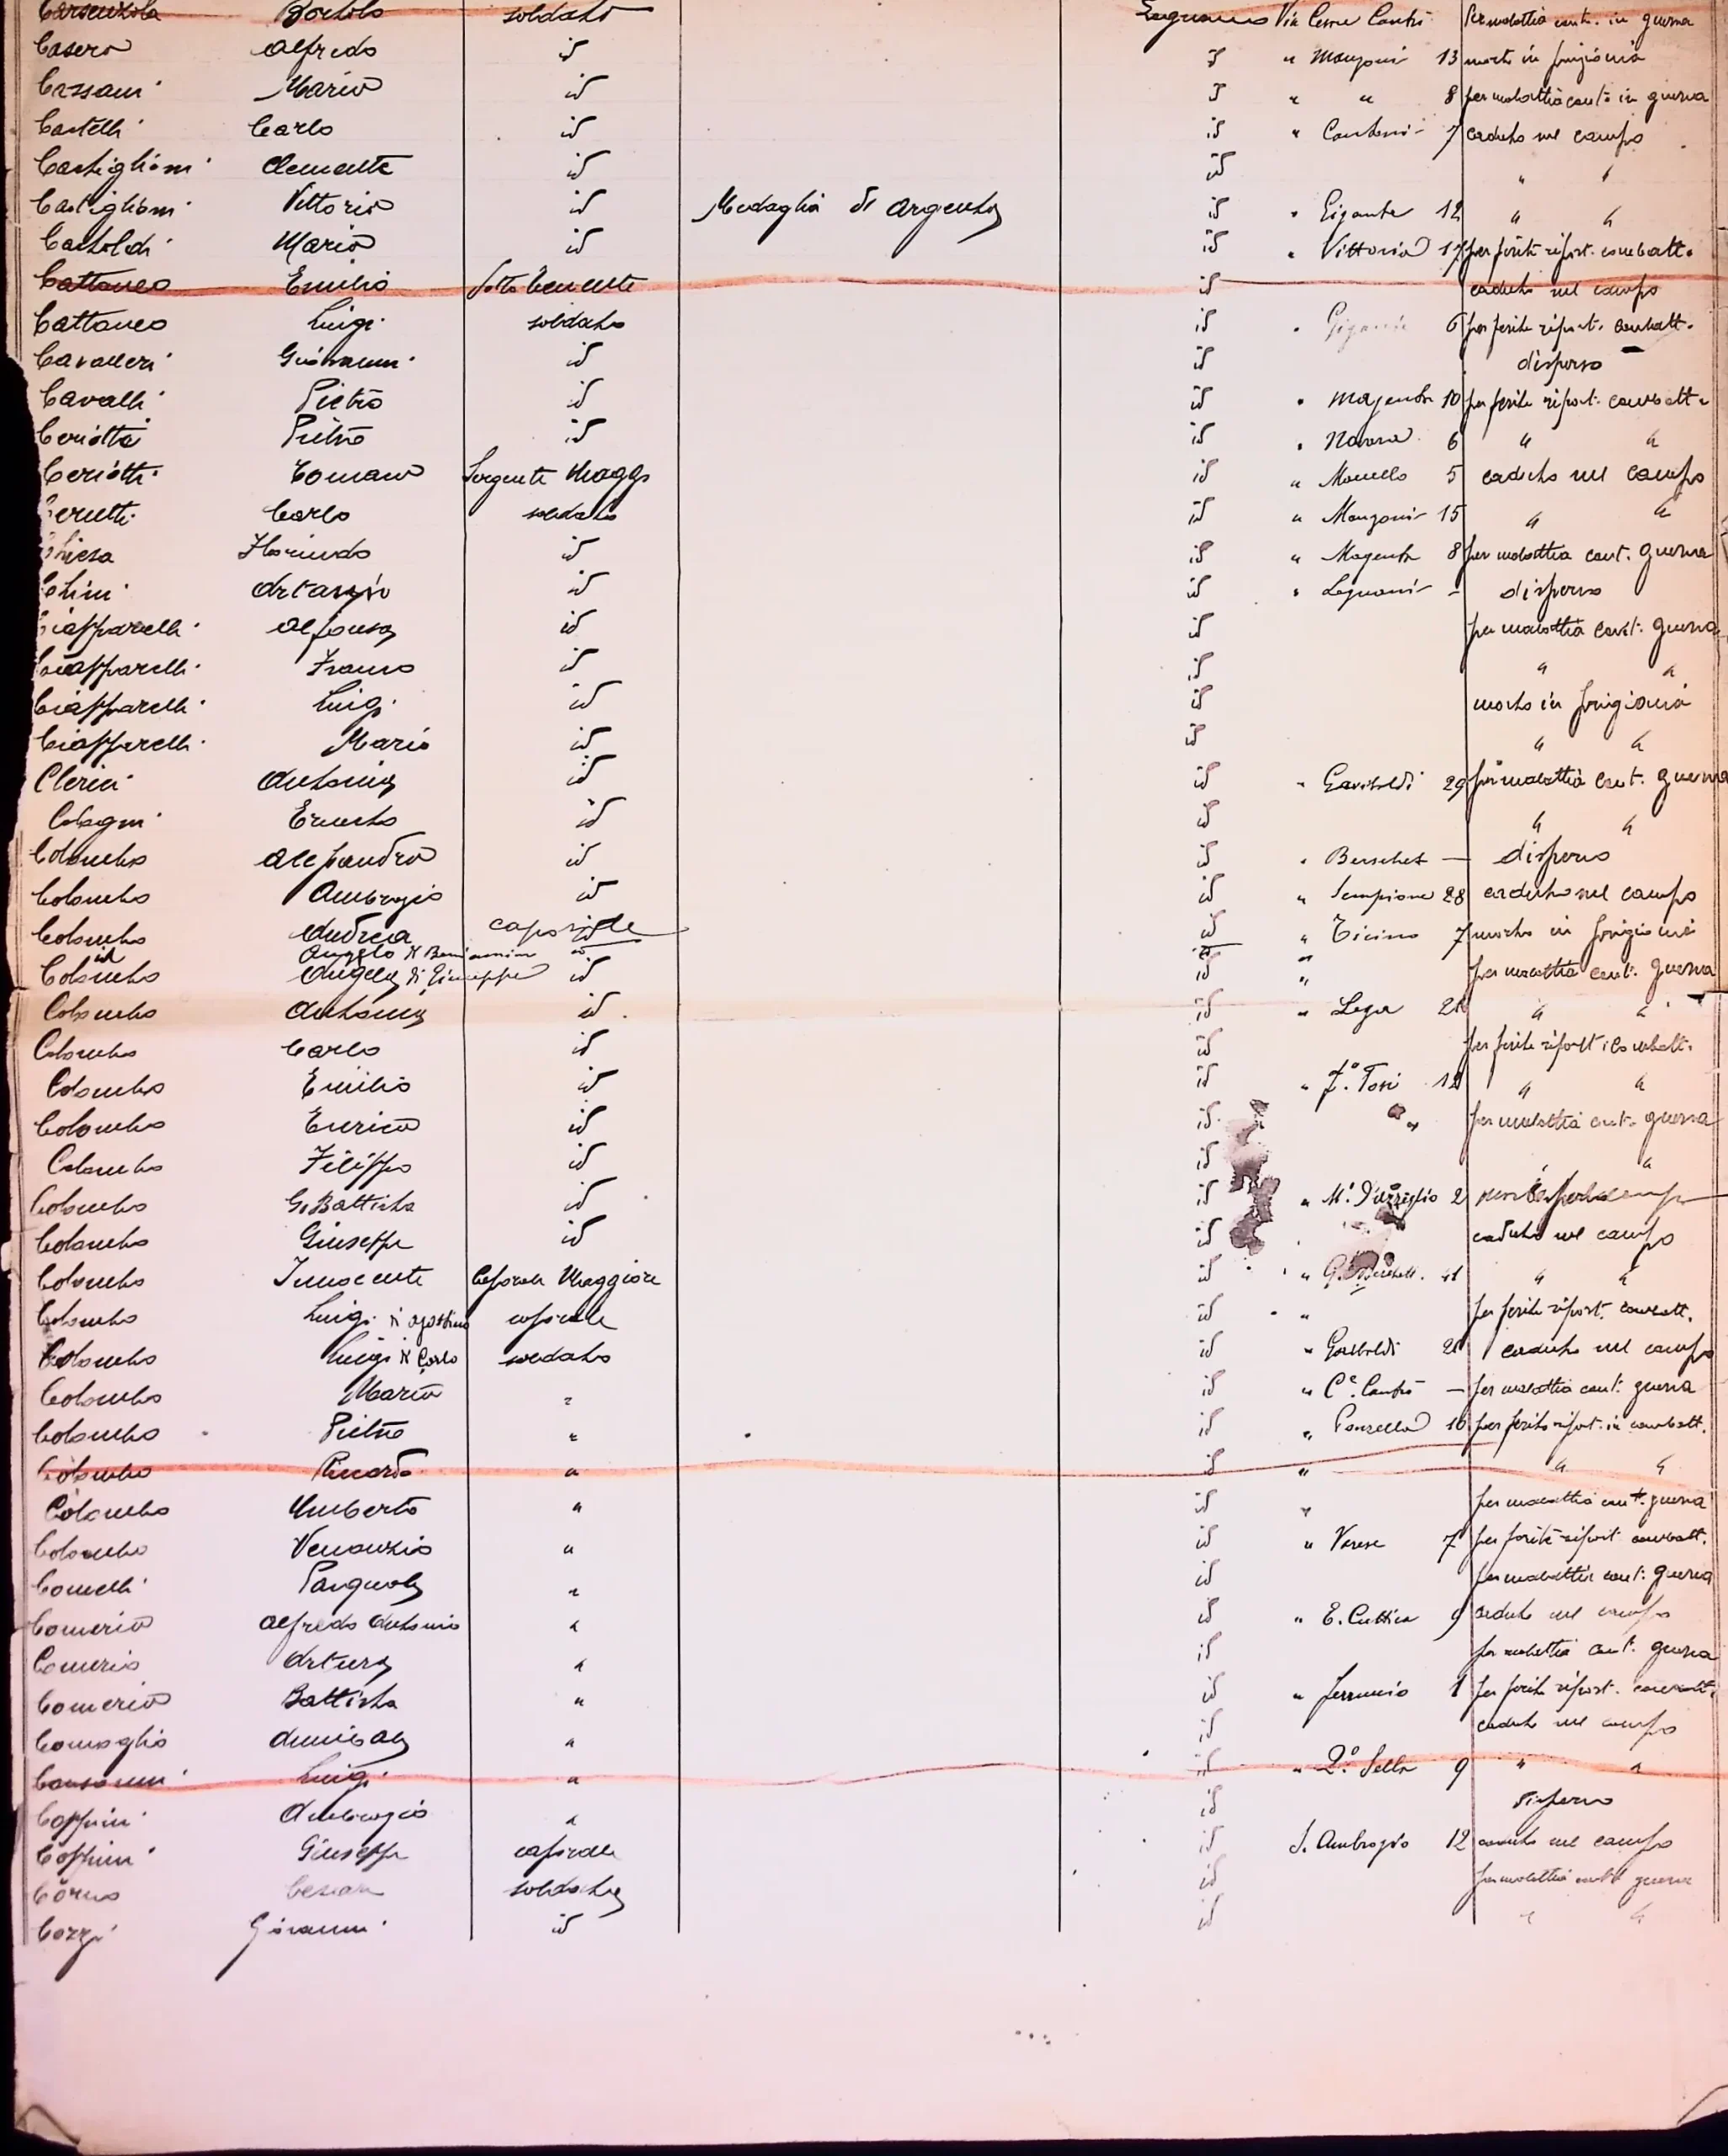 Bortolo soldato Legnano Via Cesare Cantù Per malattia cont. in guerra
Casero Alfredo id id " Manzoni 13 morto in prigionia
Cassani Mario id id " " 8 per malattia cont. in guerra
Castelli Carlo id id " Cantoni 7 caduto nel campo
Castiglioni Clemente id id " "
Castiglioni Vittorio id Medaglia di Argento id " Gigante 12 " "
Castoldi Mario id id " Vittoria 17 per ferite riport. combatt.
Cattaneo Emilio Sotto tenente id caduto nel campo
Cattaneo Luigi soldato id " 6 per ferite riport. combatt.
Cavalleri Giovanni id id disperso
Cavalli Pietro id id " Magenta 10 per ferite riport. combatt.
Ceriotti Pietro id id " Novara 6 " "
Ceriotti Romano Sergente Maggr id " 5 caduto nel campo
Cerutti Carlo soldato id " Manzoni 15 " "
Chiesa Florindo id id " Magenta 8 per malattia cont. guerra
Chini id id " Legnani - disperso
Ciapparelli Alfonso id id per malattia cont. guerra
Ciapparelli Franco id id " "
Ciapparelli Luigi id id morto in prigionia
Ciapparelli Mario id id " "
Clerici Antonio id id " Garibaldi 29 per malattia cont. guerra
Cologni Ernesto id id " "
Colombo Alessandro id id " Berchet — disperso
Colombo Ambrogio id id " Sempione 28 caduto nel campo
Colombo Andrea caporale id " Ticino 7 morto in prigionia
id Angelo di Beniamino id id "
Colombo Angelo di Giuseppe id id " per malattia cont. guerra
Colombo Antonio id id " Lega " "
Colombo Carlo id id per ferite riport. combatt.
Colombo Emilio id id " F. Tosi 12 " "
Colombo Enrico id id " per malattia cont. guerra
Colombo Filippo id id "
Colombo G. Battista id id " M. D'Azeglio 2
Colombo Giuseppe id id caduto nel campo
Colombo Innocente Caporale Maggiore id " 41 " "
Colombo Luigi di Agostino caporale id " per ferite riport. combatt.
Colombo Luigi di Carlo soldato id " Garibaldi caduto nel campo
Colombo Mario " id " Ce. Cantù — per malattia cont. guerra
Colombo Pietro " id " Ponzella 16 per ferite riport. in combatt.
Colombo " id " " "
Colombo Umberto " id " per malattia cont. guerra
Colombo Venanzio " id " Varese 7 per ferite riport. combatt.
Comelli Pasquale " id per malattia cont. guerra
Comerio Alfredo Antonio " id " E. Cuttica 9 caduto nel campo
Comerio Arturo " id per malattia cont. guerra
Comerio Battista " id " Ferruccio 1 per ferite riport. combatt.
Comoglio Annibale " id caduto nel campo
Luigi " id " Q. Sella 9 " "
Coppini Ambrogio " id disperso
Coppini Giuseppe caporale id S. Ambrogio 12 caduto nel campo
Corno Cesare soldato id per malattia cont. guerra
Cozzi Giovanni id id " "